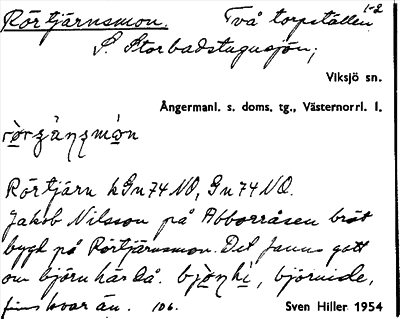 Rörtjärnsmon. Två torpställen 1-2
S. Storbadstugusjön;
Viksjö sn.
Ångermanl. s. doms. tg., Västernorrl. l.
Rörtjärn kGn74NO, Gn74NO.
Jakob Nilsson på Abborråsen bröt
bygd på Rörtjärnsmon. Det fanns gott
om björn här då. björnide,
finns kvar än. 106. Sven Hiller 1954